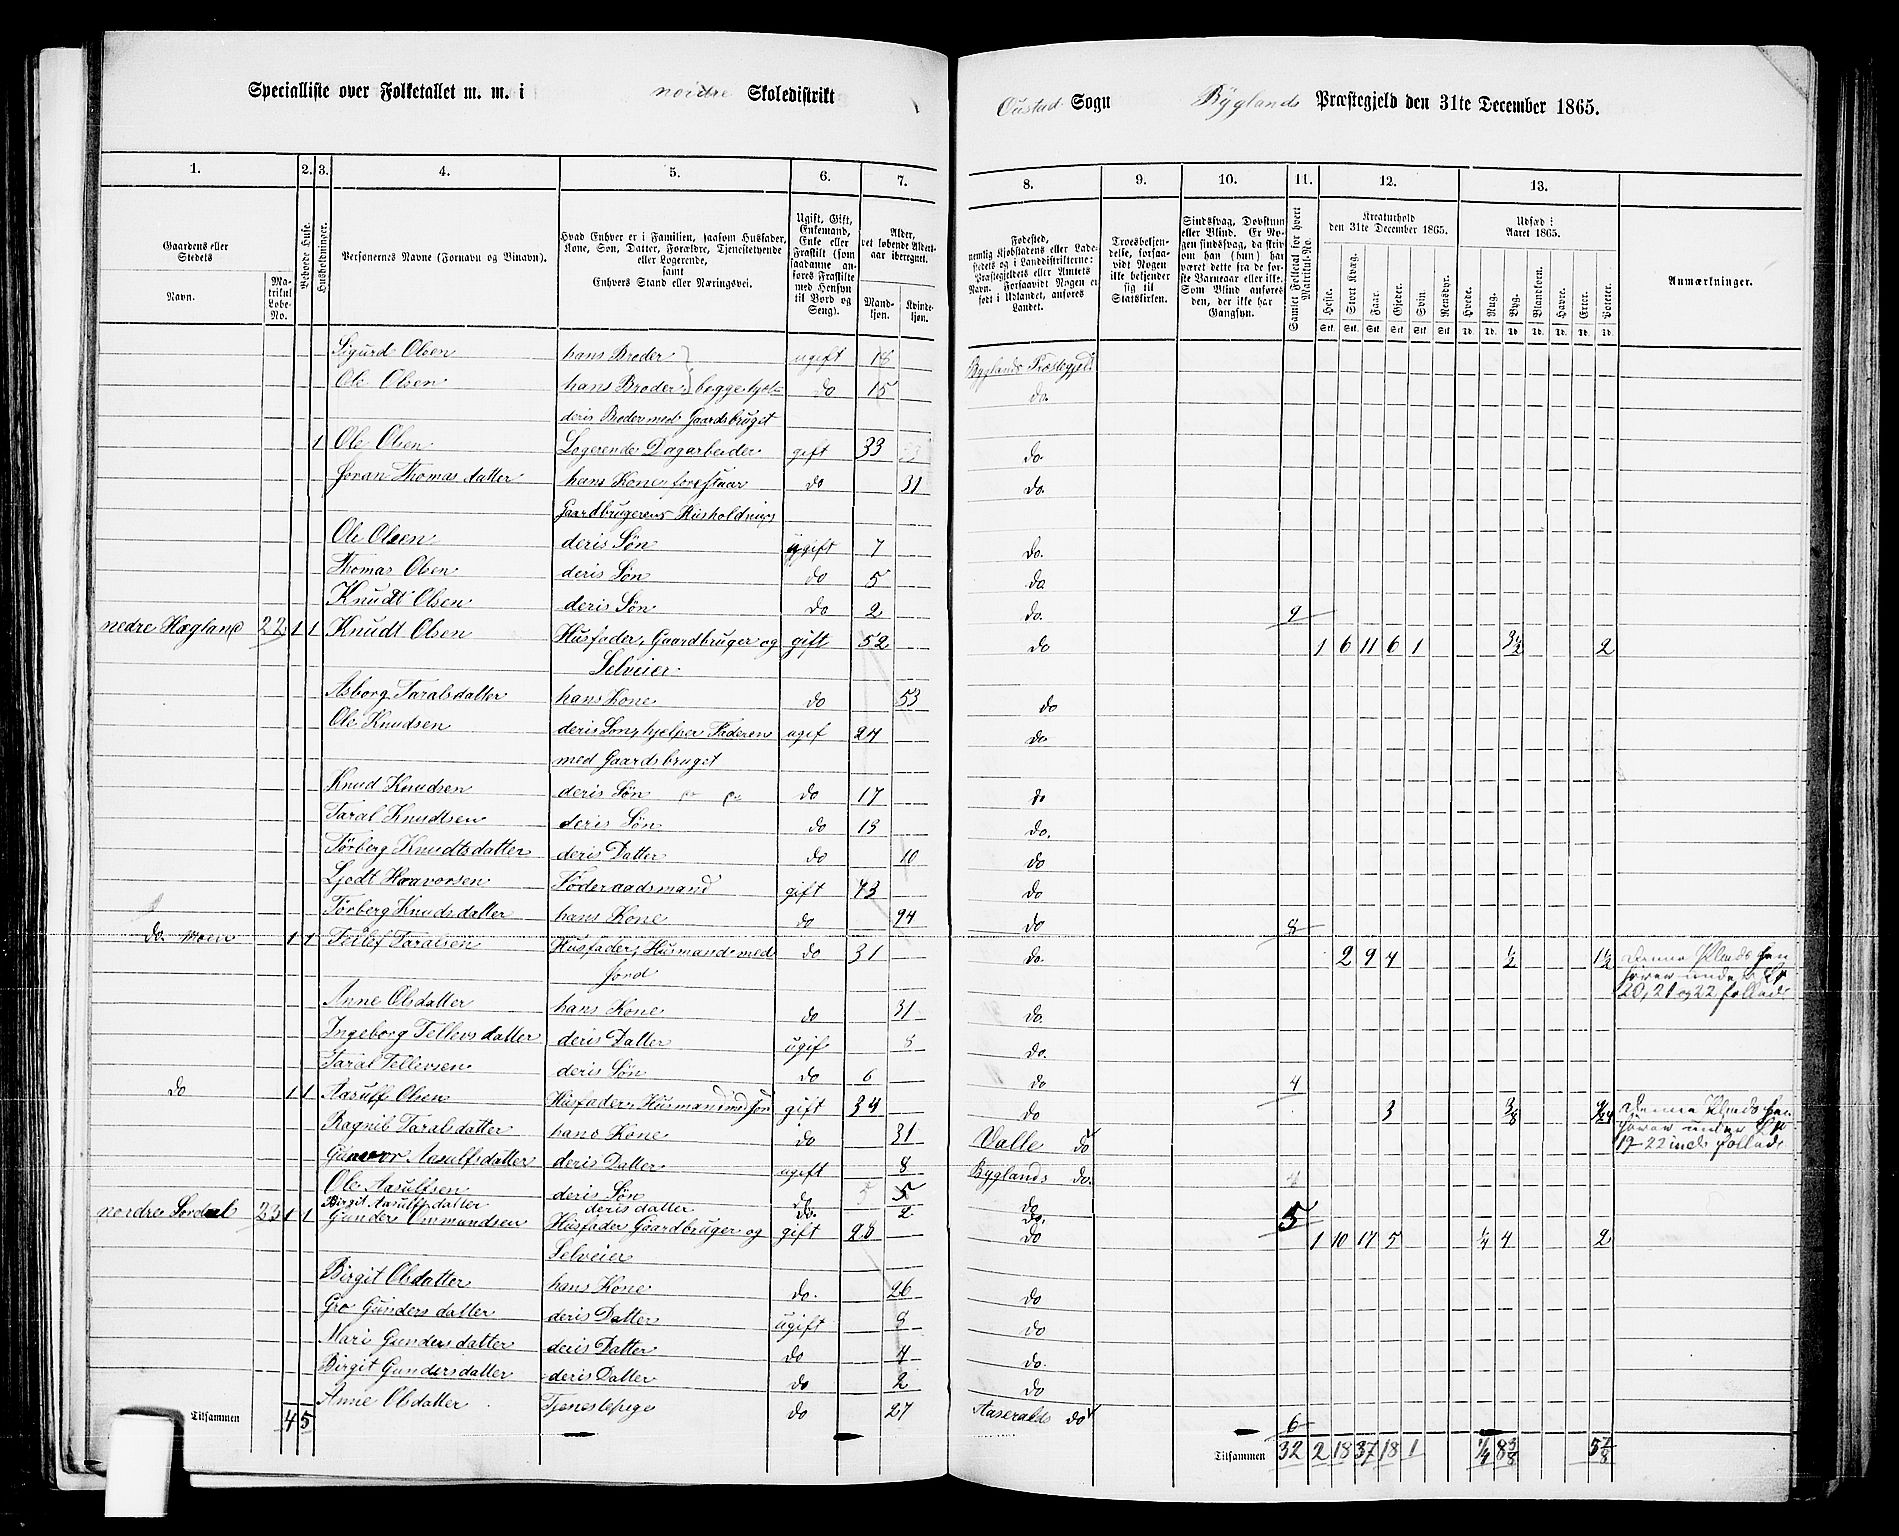 Specialliste over Folketallet m. m. i nordre Skoledistrikt
Oustad Sogn Byglands Præstegjeld den 31te December 1865.
1. 2. 3. 4. 5. 6. 7.
8. 9. 10. 11. 12. 13.
Gaardens eller Stedets
Navn.
Matrikul Løbe-No.
Beboede Huse.
Husholdninger.
Personernes Navne (Fornavn og Binavn).
Hvad Enhver er i Familien, saasom Husfader, Kone, Søn, Datter, Forældre, Tjenestetyende eller Logerende, samt Enhvers Stand eller Næringsvei.
Ugift, Gift, Enkemand, Enke eller Fraskilt (som saadanne anføres Fraskilte med Hensyn til Bord og Seng).
Alder, det løbende Aldersaar iberegnet.
Mandkjøn.
Kvindekjøn.
Fødested, nemlig Kjøbstadens eller Ladestedets og i Landdistrikterne: Præstegjeldets eller Amtets Navn. Forsaavidt Nogen er født i Udlandet, anføres Landet.
Troesbekjendelse, forsaavidt Nogen ikke bekjender sig til Statskirken.
Sindssvag, Døvstum eller Blind. Er Nogen sindssvag, da skrives om han (hun) har været dette fra de første Barneaar eller ikke. Som Blind anføres den, der ikke har Gangsyn.
Samlet Folketal for hvert Matrikul-No.
Kreaturhold den 31te December 1865.
Heste. Stort Kvæg. Faar. Gjeder. Svin. Rensdyr.
Udsæd i Aaret 1865.
Hvede. Rug. Byg. Blandkorn. Havre. Erter. Poteter.
Anmærkninger.
Sigurd Olsen hans Broder ugift 18 Byglands Præstegjeld
Ole Olsen hans Broder, begge hjæl- do 15 do.
deris Broder med Gaardsbruget
1 Ole Olsen Logerende Dagarbeider gift 33 do.
Joran Thomasdatter hans Kone, forestaar do 31 do.
Gaardbrugerens Husholdning
Ole Olsen deris Søn ugift 7 do.
Thomas Olsen deris Søn do 5 do.
Knudt Olsen deris Søn do 2 do. 9
nedre Hægland 22 1 1 Knudt Olsen Husfader, Gaardbruger og gift 52 do 1 6 11 6 1 3 1/2 2
Selveier
Asborg Taralsdatter hans Kone do 53 do
Ole Knudsen deris Søn, hjelper Faderen ugif 24 do
med Gaardsbruget
Knud Knudsen deris Søn do 17 do
Taral Knudtsen deris Søn do 13 do.
Torberg Knudtsdatter deris Datter do 10 do
Ljodt Haavorsen Føderaadsmand gift 43 do
Torberg Knudsdatter hans Kone do 94 do 8
do. Moen 1 1 Tellef Taralsen Husfader, Husmand med do 31 do. 2 9 4 1/2 1 1/2 Denne Plads
Jord 20, 21 og 22
Anne Olsdatter hans Kone do 31 do.
Ingeborg Tellevsdatter deris Datter ugif 8 do.
Taral Tellevsen deris Søn do 6 do 4
do 1 1 Aasulf Olsen Husfader, Husmand med Jor gift 34 do 3 3/8 Denne Plads
Ragnild Taralsdatter hans Kone do 31 Valle do 19-22
Gunvor Aasulfsdatter deris Datter ugift 8 Byglands do.
Ole Aasulfsen deris Søn do 5 do
Birgit Aasulfsdatter deris datter do. 2 do. 5
nordre Sordal 23 1 1 Gunder Ommundsen Husfader Gaardbruger og gift 28 do 1 10 17 5 1/4 4 2
Selveier
Birgit Olsdatter hans Kone do. 26 do
Gro Gundersdatter deris Datter ugift 8 do
Mari Gundersdatter deris Datter do 4 do.
Birgit Gundersdatter deris Datter do 2 do
Anne Olsdatter Tjenestepige do 27 Aaseralds do 6
Tilsammen 4 5
Tilsammen 32 2 18 37 18 1 1/4 8 3/8 5 7/8